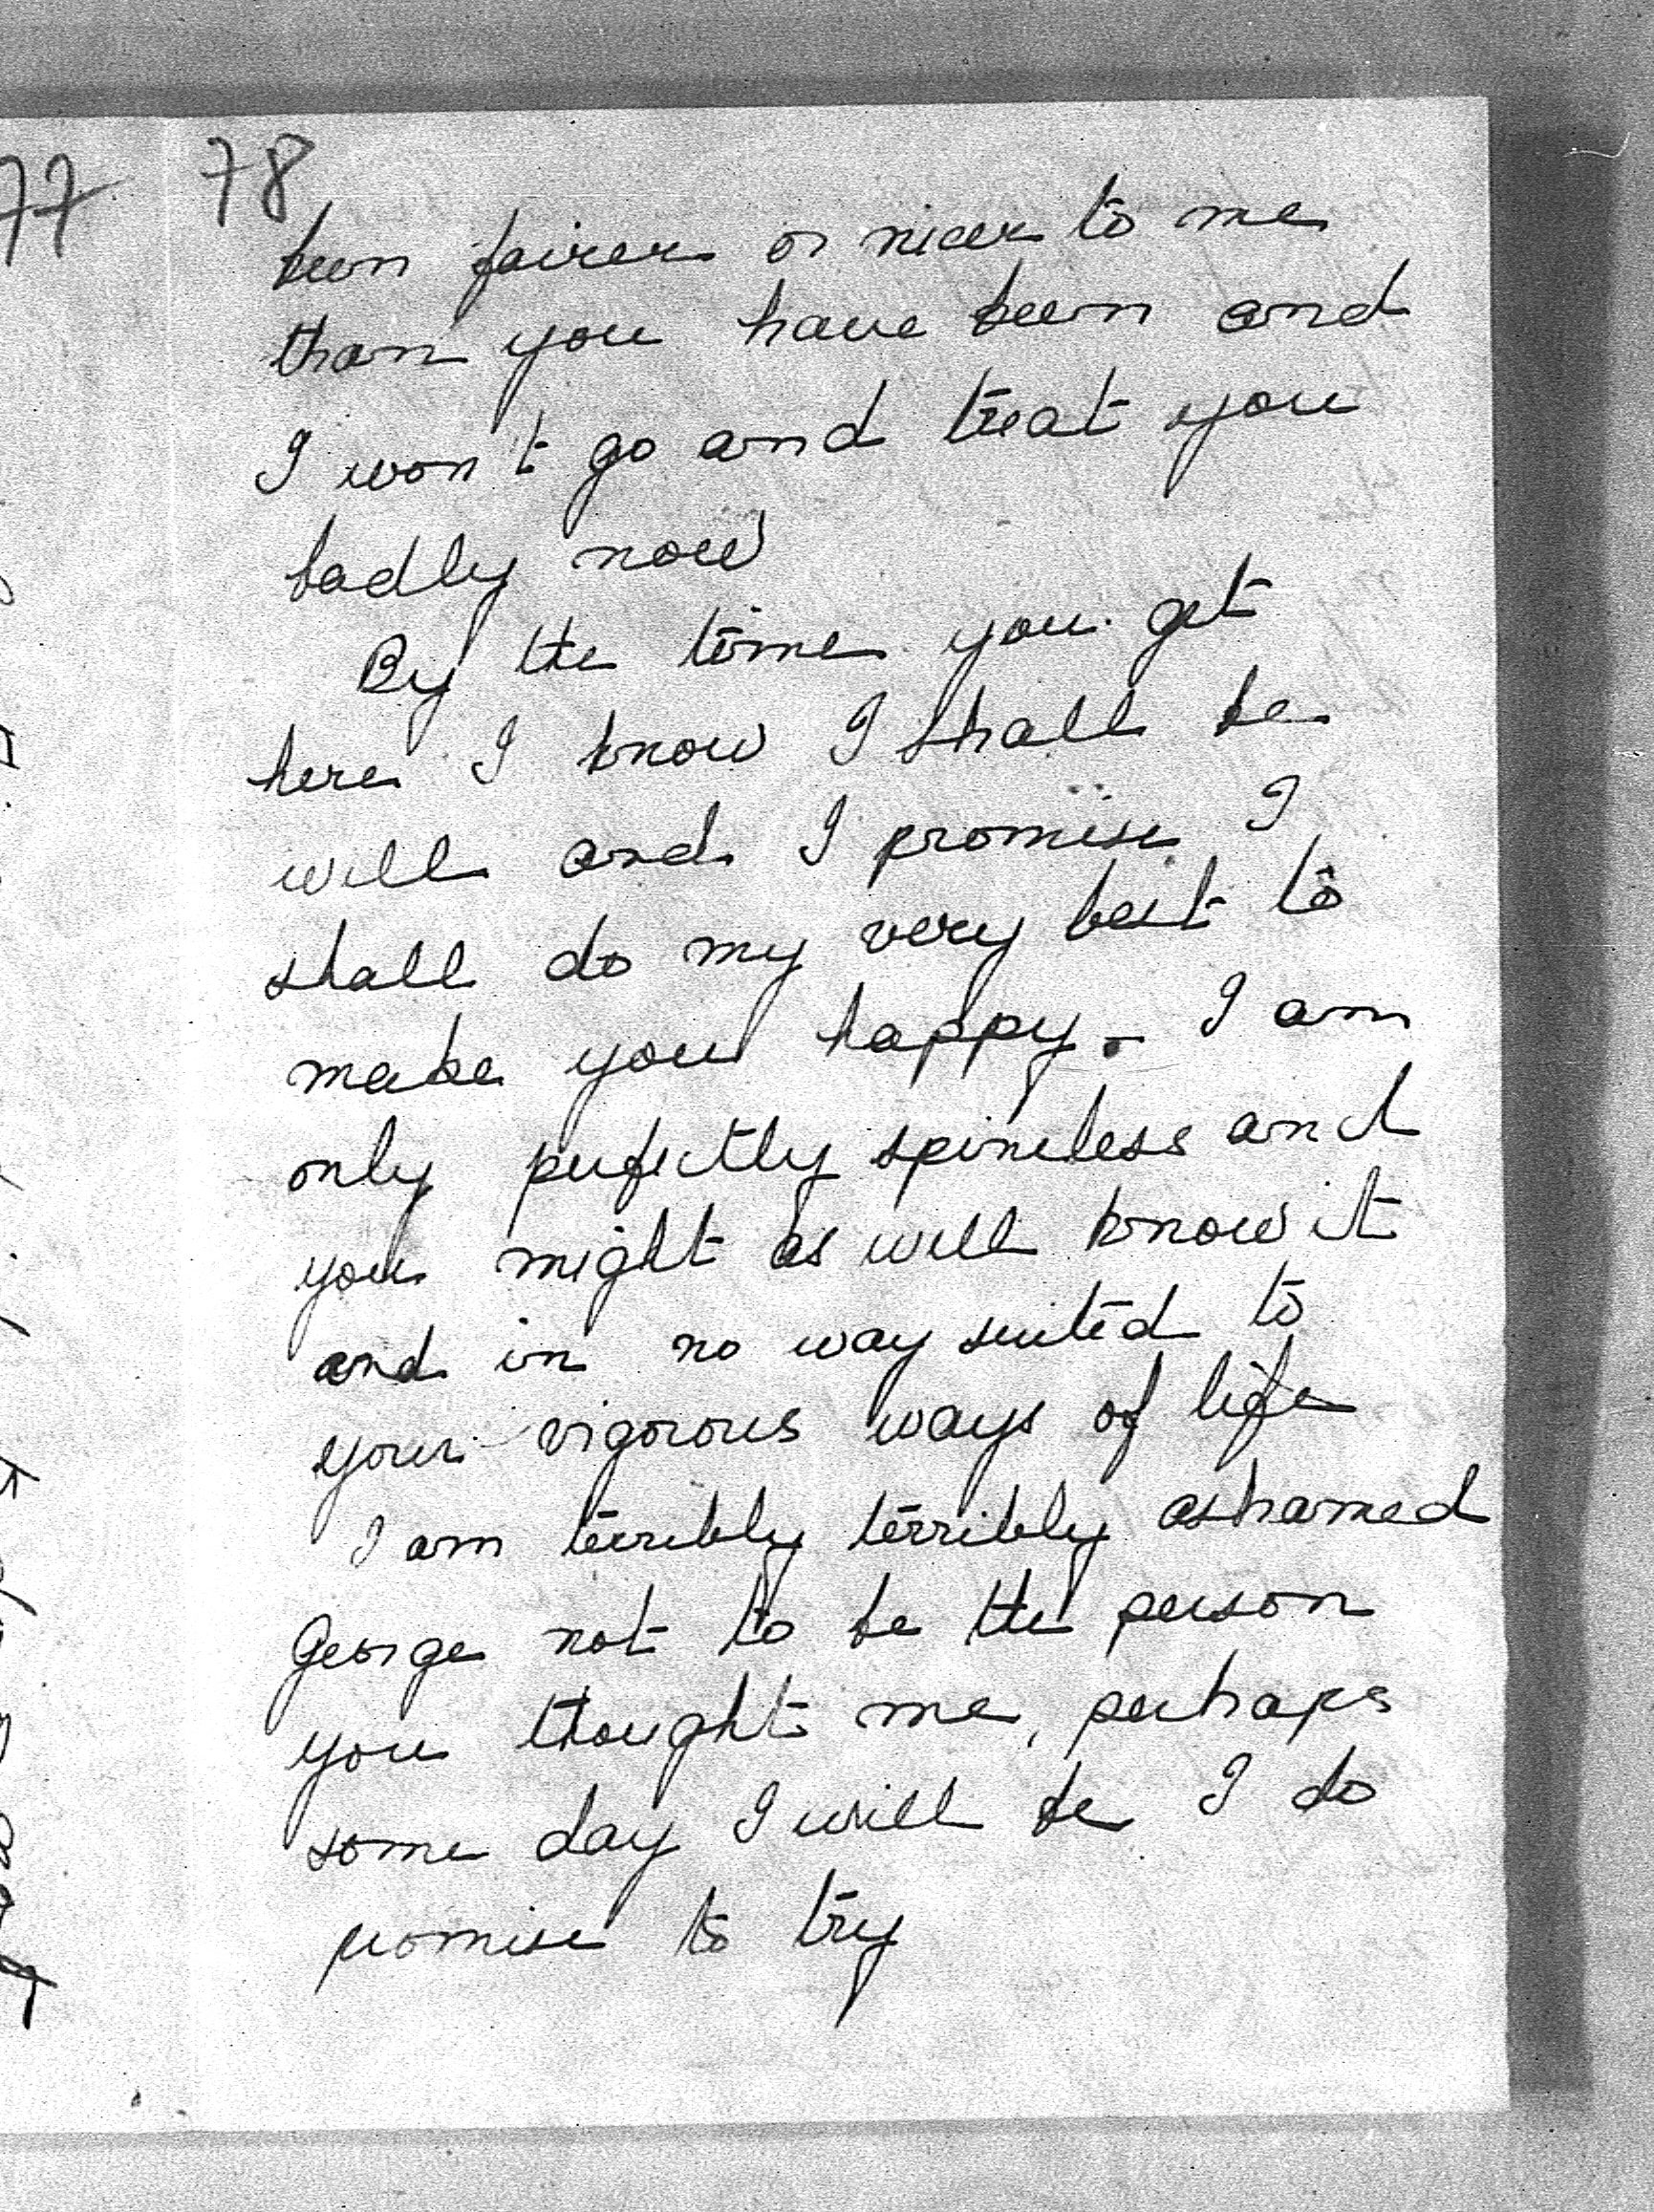 77 78
been fairer or nicer to me
than you have been and
I won't go and treat you
badly now
By the time you get
here I know I shall be
well and I promise I
shall do my very best to
make you happy. I am
only perfectly spineless and
you might as well know it
and in no way suited to
your vigorous ways of life
I am terribly terribly ashamed
George not to be the person
you thought me, perhaps
some day I will be I do
promise to try